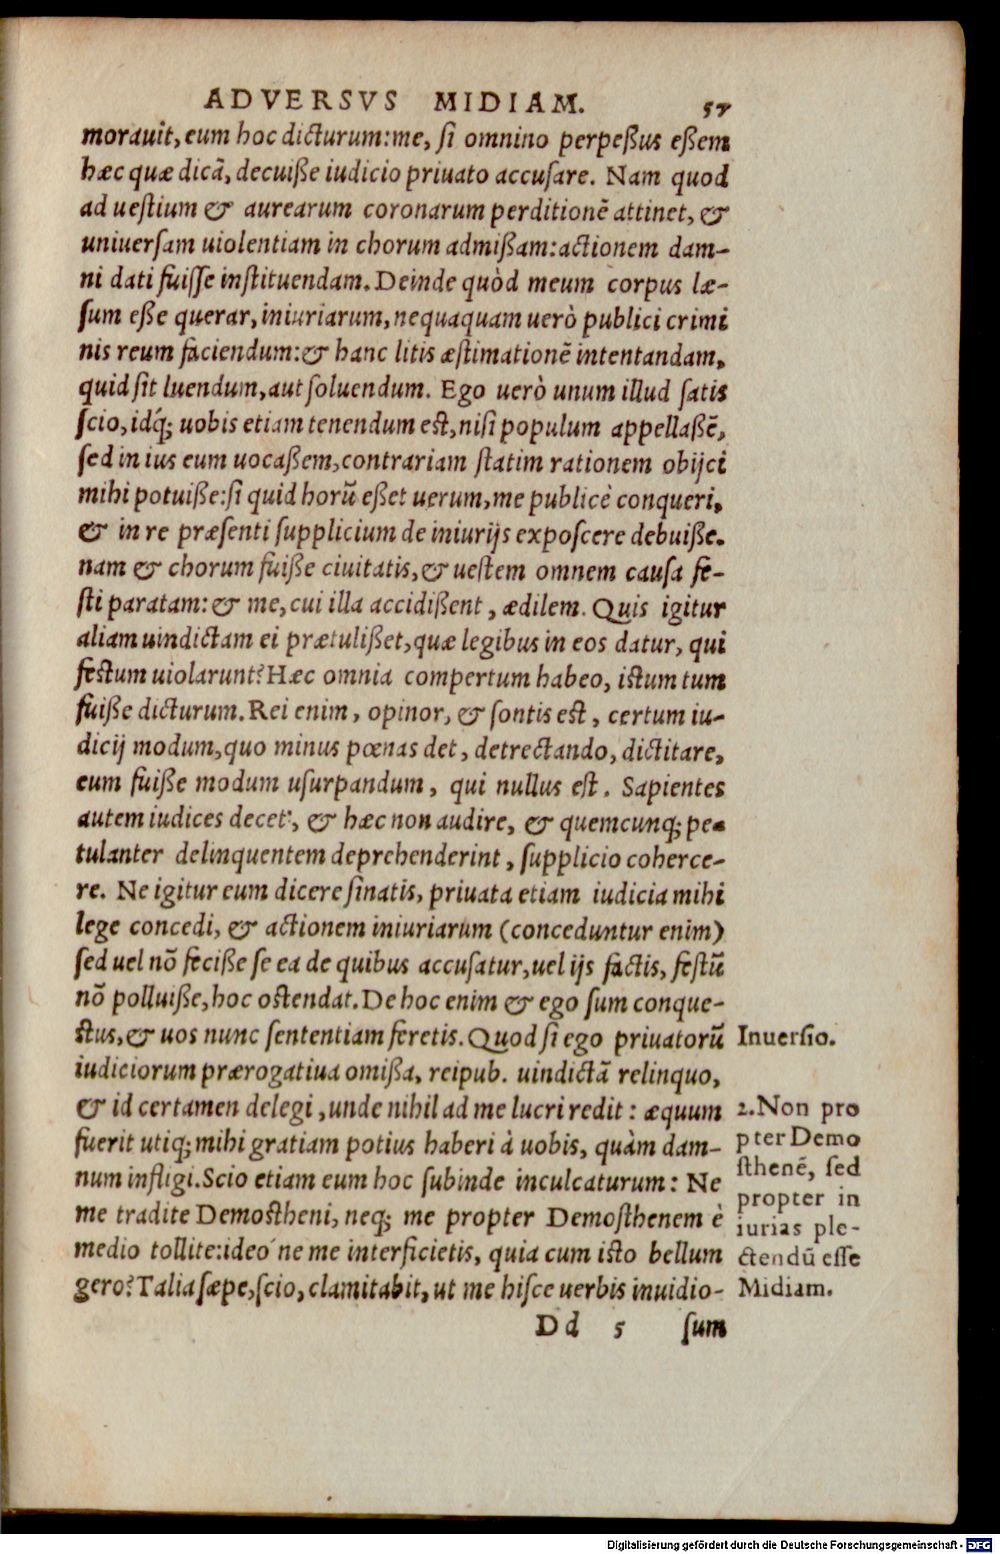 ADVERSVS MIDIAM. 57
morauit, eum hoc dicturum: me, si omnino perpeßus eßem
hæc quæ dicā, decuiße iudicio priuato accusare. Nam quod
ad uestium & aurearum coronarum perditionē attinet, &
uniuersam uiolentiam in chorum admißam: actionem dam-
ni dati fuisse instituendam. Deinde quòd meum corpus læ-
sum eße querar, iniuriarum, nequaquam uerò publici crimi
nis reum faciendum: & hanc litis æstimationē intentandam,
quid sit luendum, aut soluendum. Ego uerò unum illud satis
scio, idq́; uobis etiam tenendum est, nisi populum appellaßē,
sed in ius eum uocaßem, contrariam statim rationem obijci
mihi potuiße: si quid horū eßet uerum, me publicè conqueri,
& in re præsenti supplicium de iniurijs exposcere debuiße.
nam & chorum fuiße ciuitatis, & uestem omnem causa fe-
sti paratam: & me, cui illa accidißent, ædilem. Quis igitur
aliam uindictam ei prætulißet, quæ legibus in eos datur, qui
festum uiolarunt? Hæc omnia compertum habeo, istum tum
fuiße dicturum. Rei enim, opinor, & sontis est, certum iu-
dicij modum, quo minus pœnas det, detrectando, dictitare,
eum fuiße modum usurpandum, qui nullus est. Sapientes
autem iudices decet, & hæc non audire, & quemcunq; pe-
tulanter delinquentem deprehenderint, supplicio coherce-
re. Ne igitur eum dicere sinatis, priuata etiam iudicia mihi
lege concedi, & actionem iniuriarum (conceduntur enim)
sed uel nō feciße se ea de quibus accusatur, uel ijs factis, festū
nō polluiße, hoc ostendat. De hoc enim & ego sum conque-
stus, & uos nunc sententiam feretis. Quod si ego priuatorū
iudiciorum prærogatiua omißa, reipub. uindictā relinquo,
& id certamen delegi, unde nihil ad me lucri redit: æquum
fuerit utiq; mihi gratiam potius haberi à uobis, quàm dam-
num infligi. Scio etiam eum hoc subinde inculcaturum: Ne
me tradite Demostheni, neq; me propter Demosthenem è
medio tollite: ideo ne me interficietis, quia cum isto bellum
gero? Talia sæpe, scio, clamitabit, ut me hisce uerbis inuidio-
Dd 5 sum
Inuersio.
2. Non pro
pter Demo
sthenē, sed
propter in
iurias ple-
ctendū esse
Midiam.
Digitalisierung gefördert durch die Deutsche Forschungsgemeinschaft - DFG